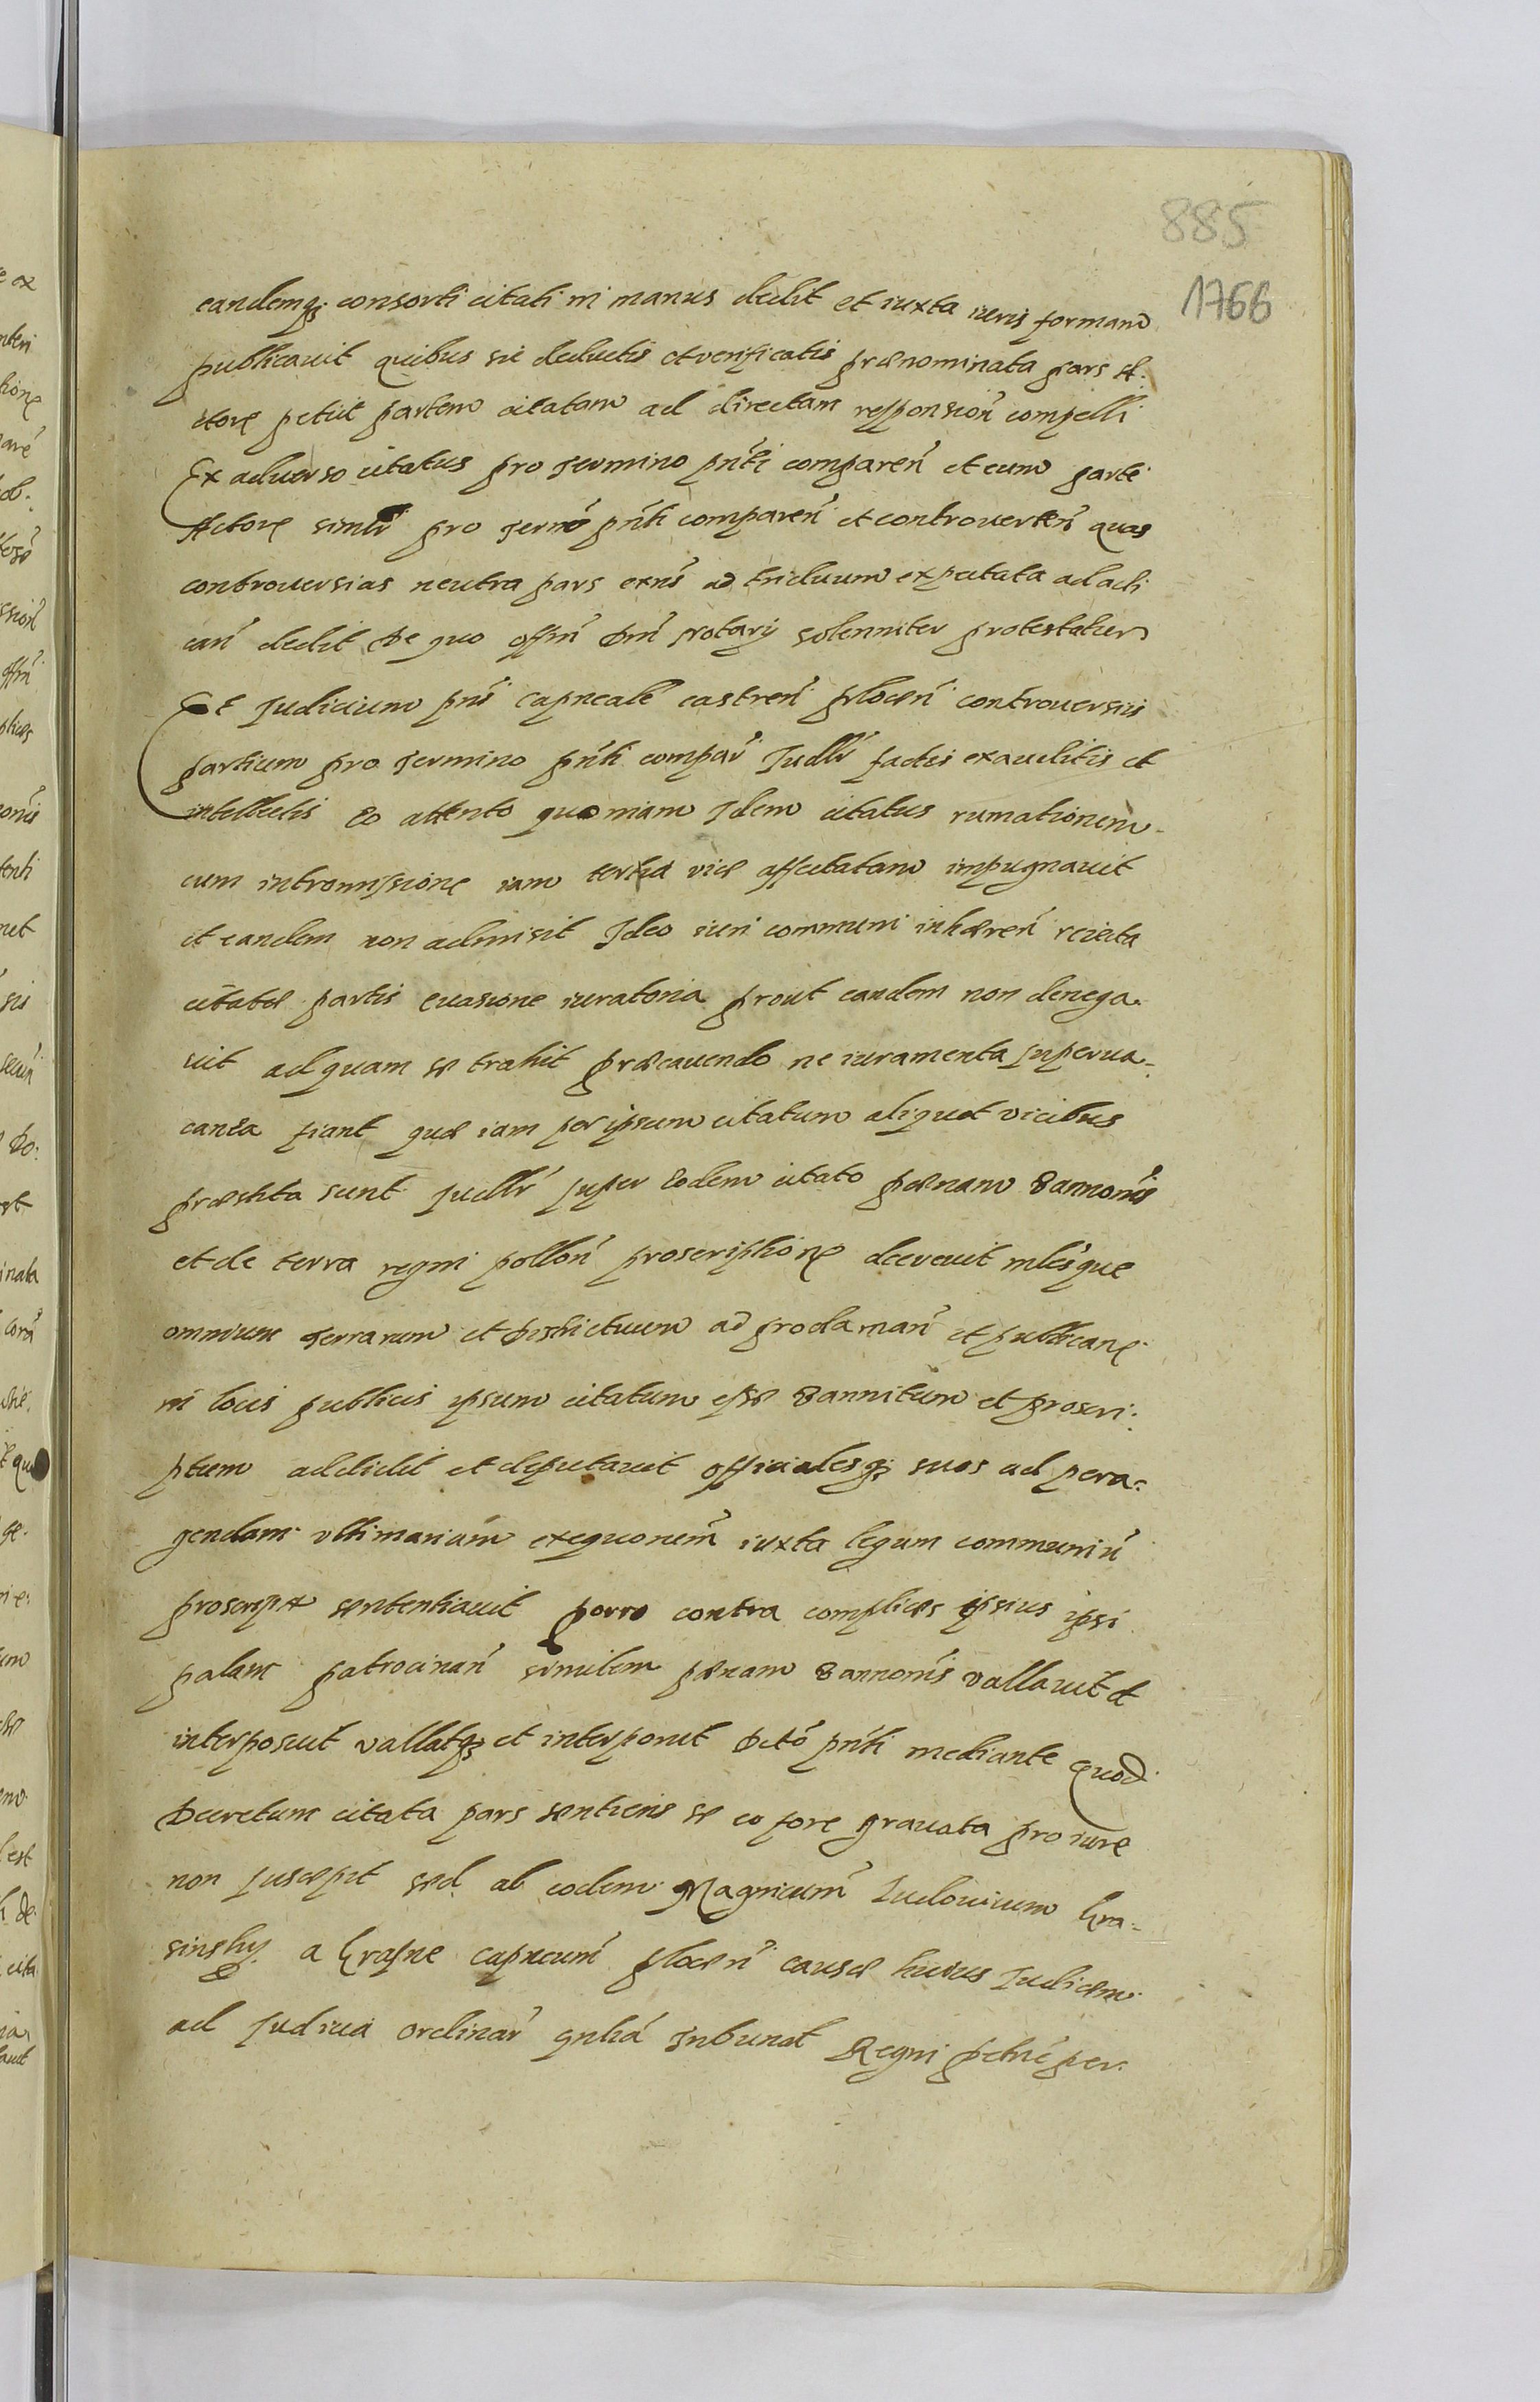 885
1766
eandemq; consorti citati in manus dedit et iuxta iuris formam
publicavit quibus sic deductis et verificatis prænominata pars A:
ctore petiit partem citatam ad directam responsion̄ compelli
Ex adverso citatus pro termino pn̄ti comparen̄ et cum parte
Actore simlr̄ pro termō pn̄ti comparen̄ et controverten̄ quas
controversias neutra pars exn̄s ad triduum expectata ad acti
can̄ dedit De quo offm̄ Dn̄i Notarij solenniter protestatur
Et Judicium pn̄s Capneale castren̄ Plocen̄ controversiis
partium pro termino pn̄ti compar̄ Judlr̄ factis exauditis et
intellectis Eo attento quoniam Idem citatus rumationem
cum intromissione iam tertia vice affectatam impugnavit
et eandem non admisit Ideo iuri communi inhæren̄ reiecta
citatæ partis evasione iuratoria prout eandem non denega-
vit ad quam se trahit præcavendo ne iuramenta superva-
canea fiant quæ iam per ipsum citatum aliquot vicibus
præstita sunt Judlr̄ super Eodem citato pænam Bannonis
et de terra regni pollon̄ proscriptione decrevit mlesque
omnium Terrarum et Districtuum ad proclaman̄ et publicane
in locis publicis ipsum citatum esse Bannitum et proscri:
ptum addidit et deputavit officialesq; suos ad pera-
gendam ultimariam exequonem̄ iuxta legum communiū
proscripta sententiavit porro contra complices ipsius ipsi
palam patrocinan̄ similem pænam Bannonis vallavit et
interposuit vallatq; et interponit Dctō pn̄ti mediante Quod
Decretum citata pars sentiens se eo fore gravata pro iure
non suscepit sed ab eodem Magnicum̄ Ludovicum Kra-
sinsky a Krasne capneum̄ Plocen̄ causæ huius Judicem
ad Judicia Ordinar̄ gnlia Tribunal Regni Petric per: